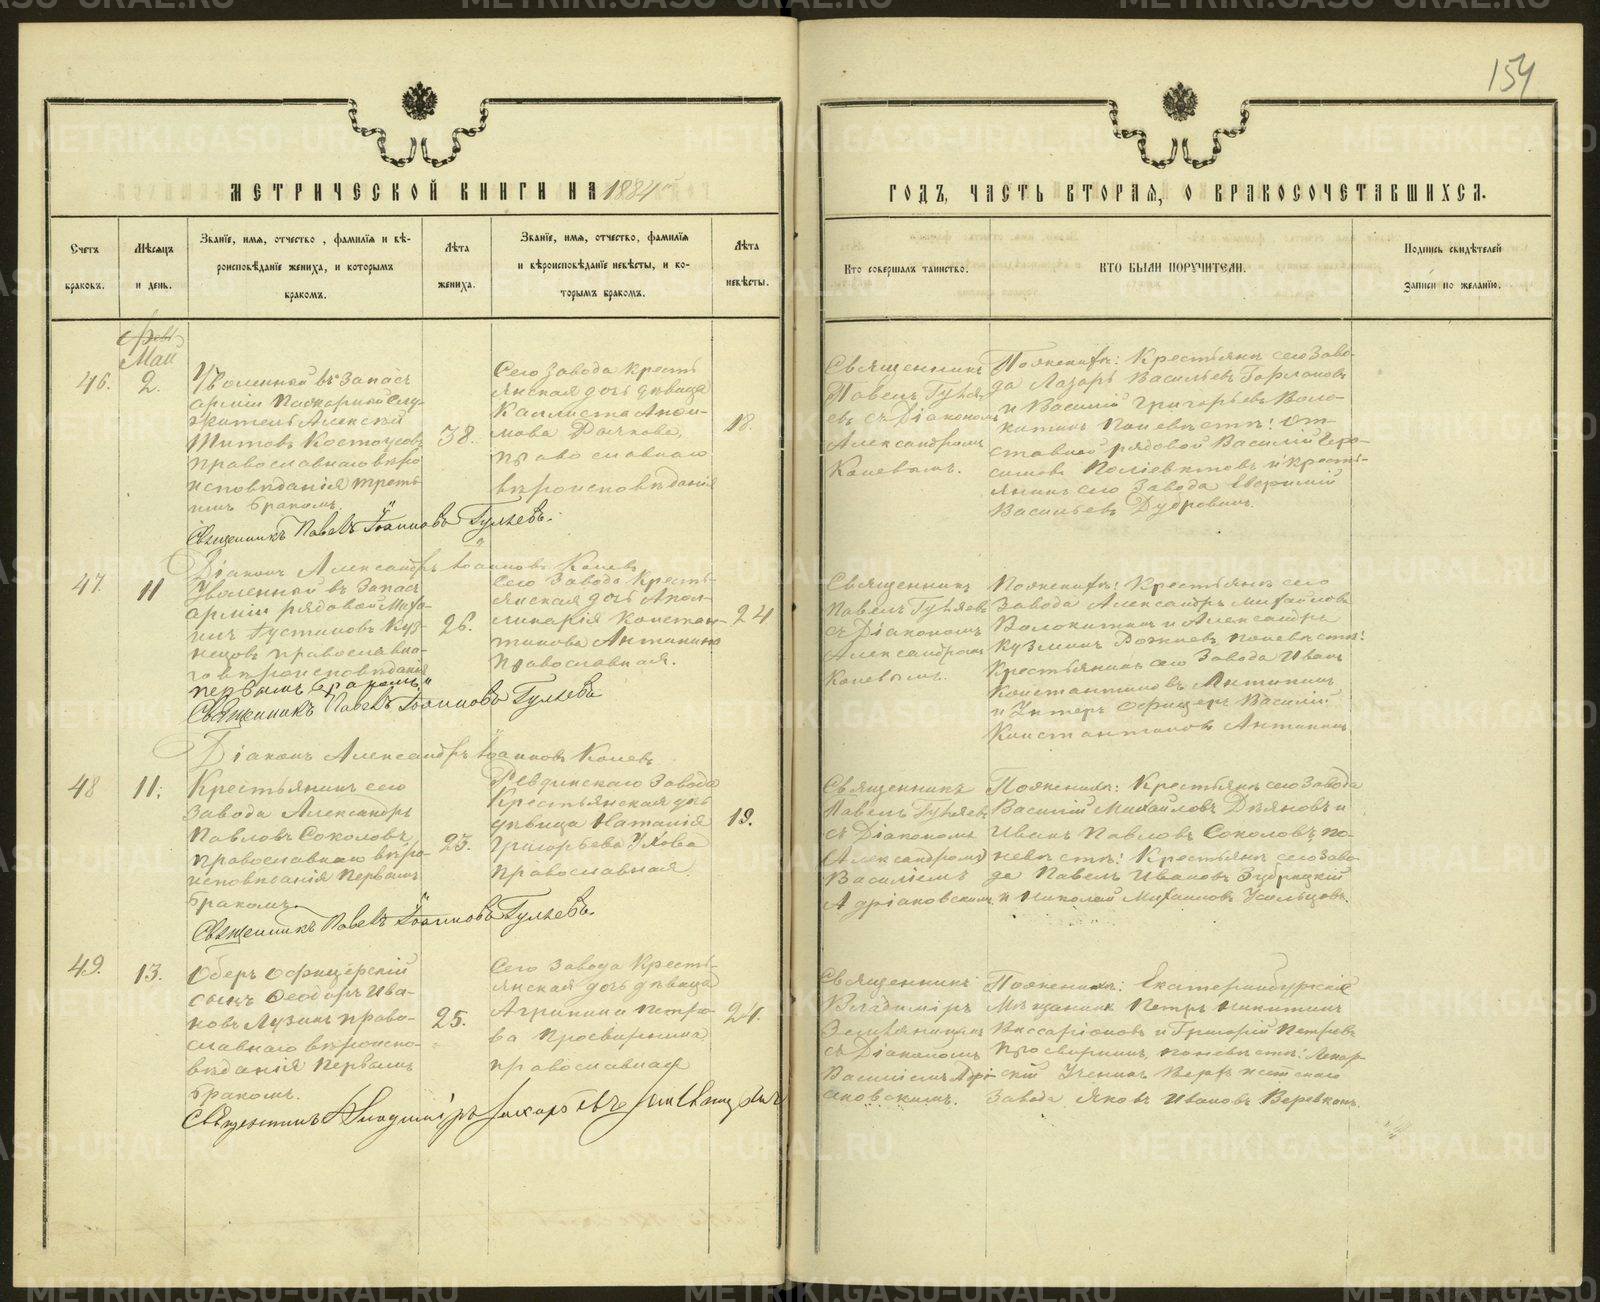 154
МЕТРИЧЕСКОЙ КНИГИ НА 1884й
ГОДЪ, ЧАСТЬ ВТОРАЯ, О БРАКОСОЧЕТАВШИХСЯ.
Счетъ браковъ.
Мѣсяцъ и день.
Званіе, имя, отчество, фамилія и вѣ-
роисповѣданіе жениха, и которымъ
бракомъ.
Лѣта
жениха.
Званіе, имя, отчество, фамилія
и вѣроисповѣданіе невѣсты, и ко-
торымъ бракомъ.
Лѣта
невѣсты.
Кто совершалъ таинство.
КТО БЫЛИ ПОРУЧИТЕЛИ.
Подпись свидѣтелей
записи по желанію.
Май
46.
2.
Уволенный въ запасъ
арміи
Алексѣй
Титовъ Костоусовъ
православнаго вѣро
исповѣданія треть
имъ бракомъ.
38.
Сего Завода Кресть
янская дочь дѣвица
Каллиста
православнаго
вѣроисповѣданія
18.
Священникъ
Павелъ Гуляе
въ съ Діаконом
Александромъ
Коневымъ.
Крестьяне сего Заво-
да Лазарь Васильевъ
и Василій Григорьевъ Воло-
китинъ По невѣстѣ: От-
ставной рядовой Василій Гера-
симовъ и Кресть-
янинъ сего Завода
Васильевъ
Священникъ Павелъ Іоанновъ Гуляевъ.
Діаконъ Александръ Іоанновъ Коневъ
47.
11
Уволенный въ Запасъ
арміи рядовой Миха-
илъ Іустиновъ Куз-
нецовъ православна-
го вѣроисповѣданія
первымъ бракомъ
26.
Сего Завода Кресть-
янская дочь Апол-
линарія Констан-
тинова Антипина
православная.
24
Священникъ
Павелъ Гуляевъ
съ Діакономъ
Александромъ
Коневымъ.
Крестьяне сего
Завода Александръ Михайловъ
Волокитинъ и Александръ
Кузминъ по невѣстѣ:
Крестьянинъ сего Завода Иванъ
Константиновъ Антипинъ
и Унтеръ Офицеръ Василій
Константиновъ Антипинъ
Священникъ Павелъ Іоанновъ Гуляевъ
Діаконъ Александръ Іоанновъ Коневъ
48
11.
Крестьянинъ сего
Завода Александръ
Павловъ Соколовъ
православнаго вѣро-
исповѣданія первымъ
бракомъ.
23.
Ревдинскаго Завода
Крестьянская дочь
дѣвица Наталія
Григорьева
православная.
19.
Священникъ
Павелъ Гуляевъ
съ Діакономъ
(Александромъ)
Василіемъ
Адріановскимъ
Крестьяне сего Завода
Василій Михайловъ и
Иванъ Павловъ Соколовъ по
невѣстѣ: Крестьяне сего Заво
да Павелъ Ивановъ Зубрицкій
и Николай Михайловъ Усольцовъ.
Священникъ Павелъ Іоанновъ Гуляевъ.
49.
13.
Оберъ Офицерскій
сынъ Ѳеодоръ Ива-
новъ Лузинъ право-
славнаго вѣроиспо-
вѣданія первымъ
бракомъ.
25.
Сего Завода Кресть-
янская дочь дѣвица
Агрипина Петро-
ва Просвирнина
православная
24.
Священникъ
Владиміръ
Земляницынъ
съ Діакономъ
Василіемъ Адрі
ановскимъ.
По женихѣ: Екатеринбургскіе
Мѣщанинъ Петръ Никитинъ
Виссаріоновъ и Григорій Петровъ
Просвирнинъ, по невѣстѣ: Лекар-
скій Ученикъ Верхъ Исетскаго
Завода Яковъ Ивановъ Веревкинъ.
Священникъ Владиміръ Захаровъ Земляницынъ